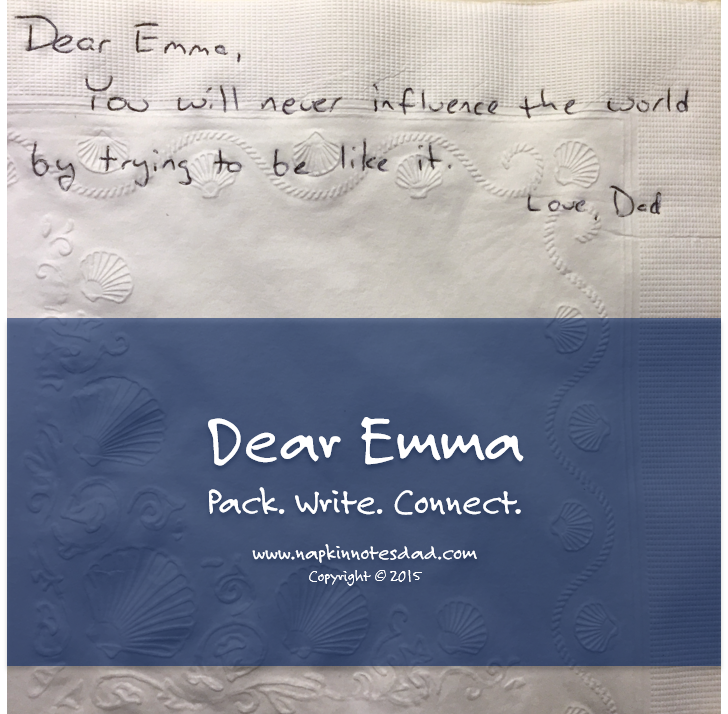 Dear Emma,
You will never influence the world
by trying to be like it.
Love, Dad
Dear Emma
Pack. Write. Connect.
www.napkinnotesdad.com
Copyright © 2015